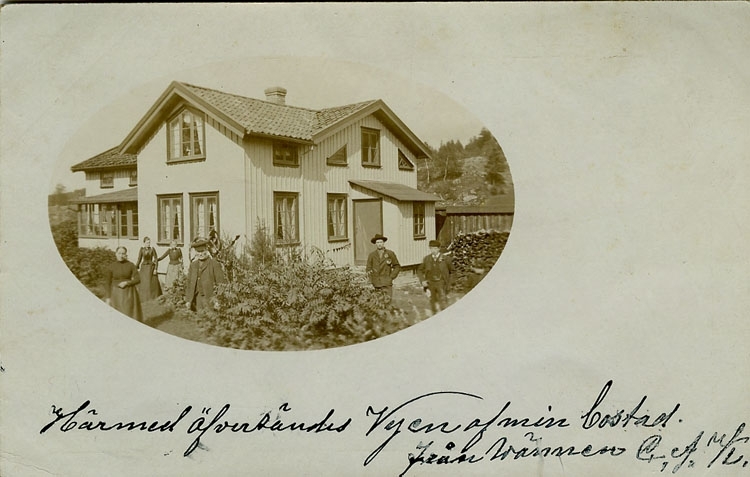 Härmed öfversändes Vyen af min bostad.
Från Wännen C. A.